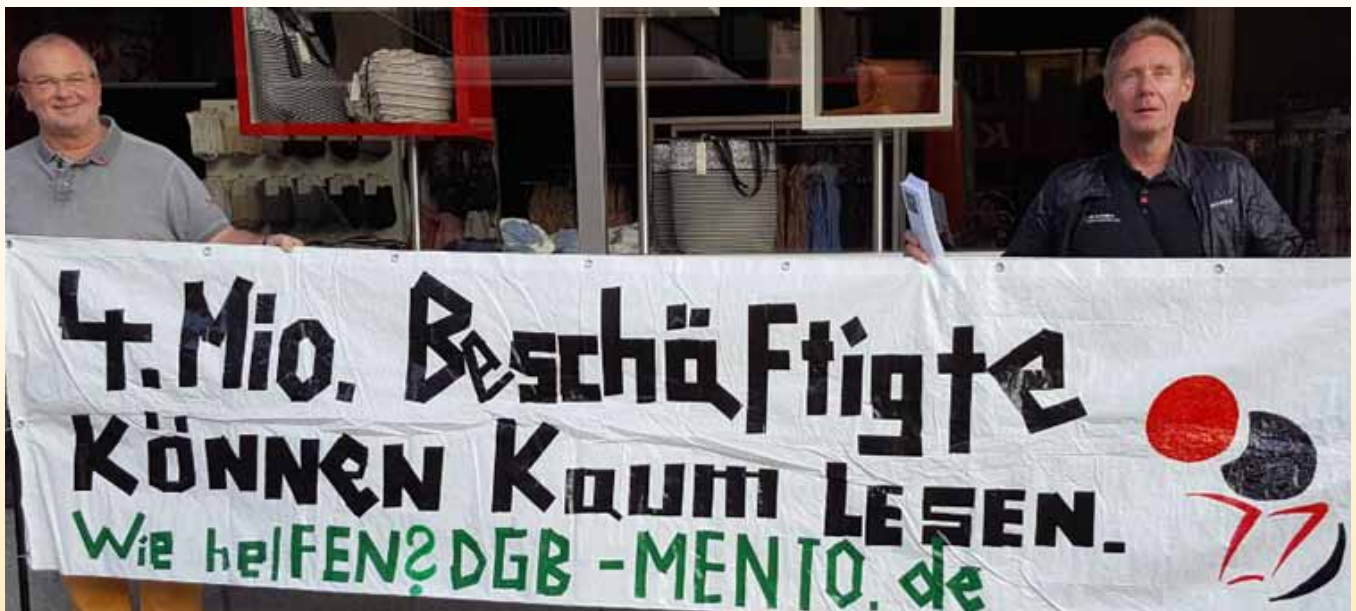 4. Mio. Beschäftigte
Können Kaum Lesen.
Wie helFEN? DGB-MENTO.de